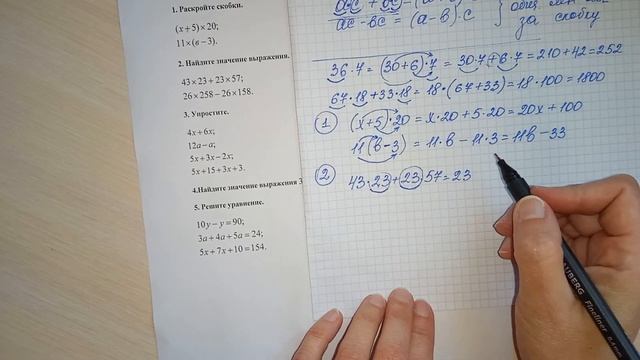 1. Раскройте скобки.
(x + 5) × 20;
11 × (в − 3).
2. Найдите значение выражения.
43 × 23 + 23 × 57;
26 × 258 − 26 × 158.
3. Упростите.
4x + 6x;
12a − a;
5x + 3x − 2x;
5x + 15 + 3x + 3.
4.Найдите значение выражения 3
5. Решите уравнение.
10y − y = 90;
3a + 4a + 5a = 24;
5x + 7x + 10 = 154.
ac − bc = (a − b) · c
за скобку
36 · 7 = (30 + 6) · 7 = 30 · 7 + 6 · 7 = 210 + 42 = 252
67 · 18 + 33 · 18 = 18 · (67 + 33) = 18 · 100 = 1800
1 (x + 5) · 20 = x · 20 + 5 · 20 = 20x + 100
11 (в − 3) = 11 · в − 11 · 3 = 11в − 33
2 43 · 23 + 23 · 57 = 23